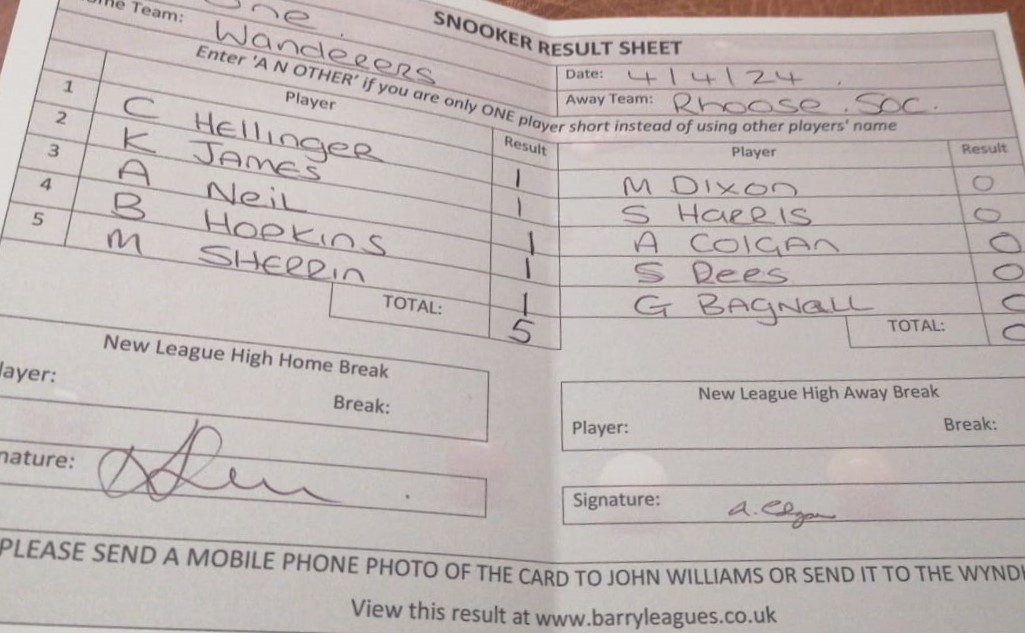 one.
SNOOKER RESULT SHEET
me Team: Wanderers
Date: 4/4/24.
Away Team: Rhoose. Soc.
Enter 'A N OTHER' if you are only ONE player short instead of using other players' name
Player Result Player Result
1 C Hellinger 1 M Dixon 0
2 K James 1 S Harris 0
3 A Neil 1 A Colgan 0
4 B Hopkins 1 S Rees 0
5 M Sherrin 1 G Bagnall 0
TOTAL: 5 TOTAL: 0
New League High Home Break
layer:
Break:
New League High Away Break
Player: Break:
nature:
Signature: a. Colgan
PLEASE SEND A MOBILE PHONE PHOTO OF THE CARD TO JOHN WILLIAMS OR SEND IT TO THE WYND
View this result at www.barryleagues.co.uk